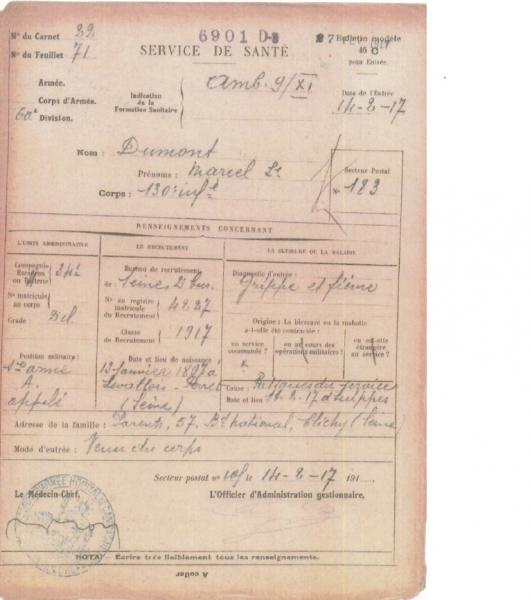 N° du Carnet 22
N° du Feuillet 71
6901 D-3
SERVICE DE SANTÉ
Bulletin modèle
46 C
pour Entrée.
Armée.
Corps d'Armée.
60e Division.
Indication
de la
Formation Sanitaire
Amb. 9/XI
Date de l'Entrée
14-2-17
Nom : Dumont
Prénoms : Marcel
Corps : 130e inf
Secteur Postal
N° 183
RENSEIGNEMENTS CONCERNANT
L'UNITÉ ADMINISTRATIVE
Compagnie
Escadron
ou Batterie
N° matricule
au corps
Grade
Position militaire :
A.
appelé
LE RECRUTEMENT
Bureau de recrutement
de : Seine 2e bur.
N° au registre
matricule
du Recrutement
Classe
de Recrutement
1917
Date et lieu de naissance
13 Janvier 1897 à
Levallois-Perret
(Seine)
LA BLESSURE OU LA MALADIE
Diagnostic d'entrée :
Grippe et fièvre
Origine : La blessure ou la maladie
a-t-elle été contractée :
en service
commandé ?
en au cours des
opérations militaires ?
ou est-elle
étrangère
au service ?
Cause : Fatigues du service
Date et lieu 2-17 Suippes
Adresse de la famille : Parents, 57, Bd National, Clichy (Seine)
Mode d'entrée : Venu du corps
Secteur postal n° 14-2-17 191
Le Médecin-Chef,
L'Officier d'Administration gestionnaire,
NOTA: Écrire très lisiblement tous les renseignements.
A coller